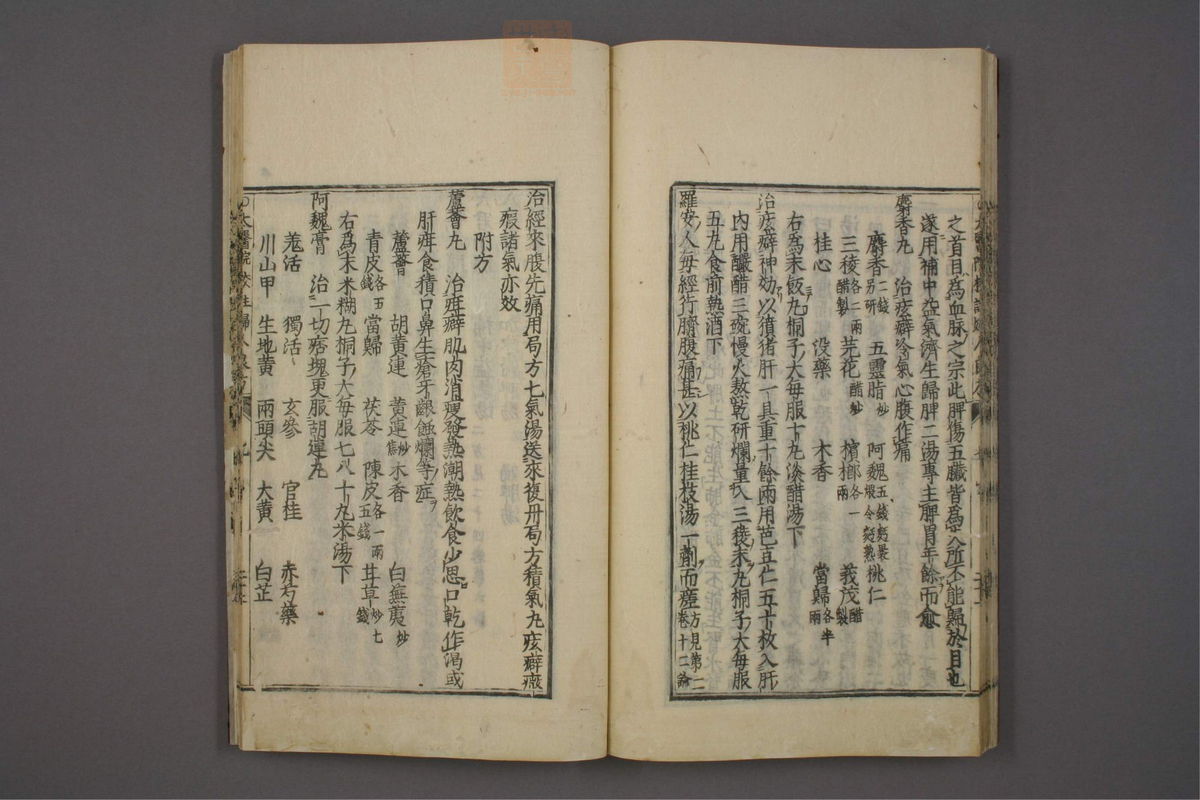 之首目為血脉之宗此脾傷五臟皆為失所不能歸於目也
遂用補中益氣濟生歸脾二湯專主脾胃年餘而愈
麝香丸 治痃癖冷氣心腹作痛
麝香二錢另研 五靈脂炒 阿魏五錢麪裹煨令麪熟 桃仁
三稜各二兩醋製 芫花醋炒 檳榔各一兩 莪茂醋製
桂心 没藥 木香 當歸各半兩
右為末飯丸桐子大每服十丸淡醋湯下
治痃癖神効以獖猪肝一具重十餘兩用芭豆仁五十枚入肝
內用釅醋三碗慢火熬乾研爛量入三稜末丸桐子大每服
五丸食前熱酒下
羅安人每經行臍腹痛甚以桃仁桂枝湯一劑而瘥方見第二卷十二論
治經來腹先痛用局方七氣湯送來復丹局方積氣丸痃癖癥
瘕諸氣亦效
附方
蘆薈丸 治疳癖肌肉消瘦發熱潮熱飲食少思口乾作渴或
肝疳食積口鼻生瘡牙齦蝕爛等症
蘆薈 胡黃連 黃連炒焦 木香 白蕪荑炒
青皮各五錢 當歸 茯苓 陳皮各一兩五錢 甘草炒七錢
右為末米糊丸桐子大每服七八十丸米湯下
阿魏膏 治一切痞塊更服胡連丸
羗活 獨活 玄參 官桂 赤芍藥
川山甲 生地黃 兩頭尖 大黃 白芷
太醫院校注婦人良方